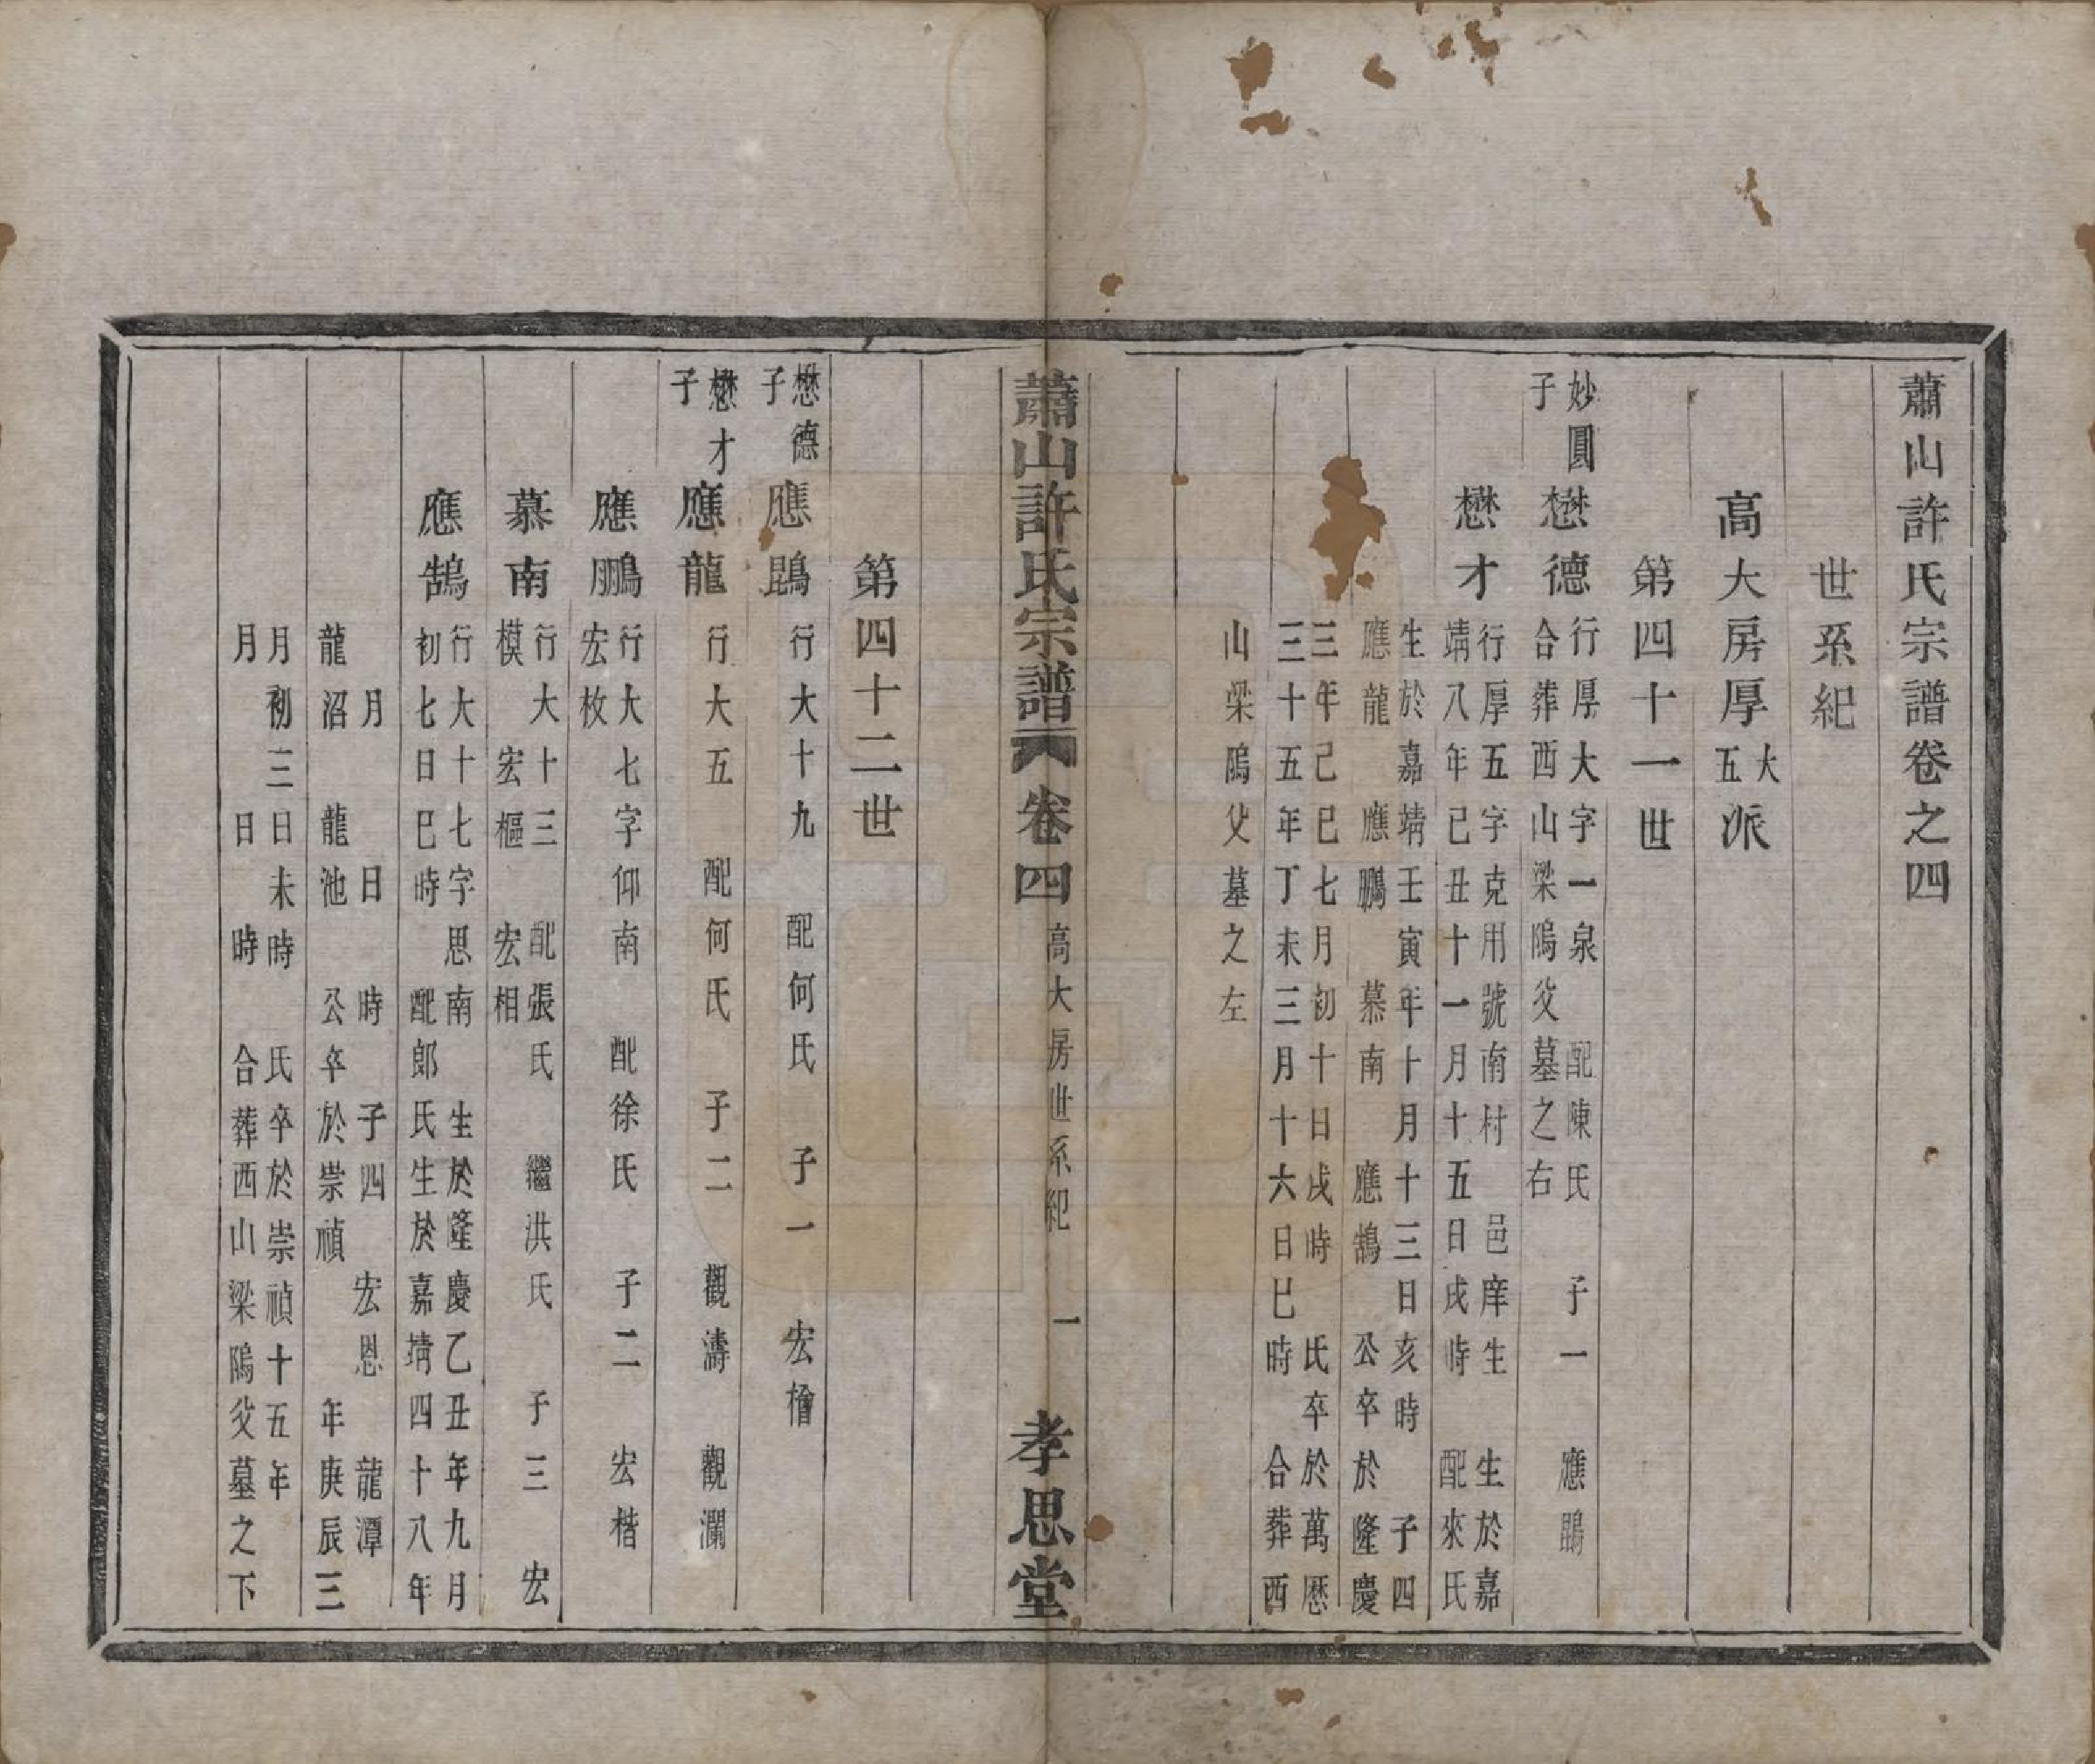 蕭山許氏宗譜卷之四
世系紀
高大房厚大五派
第四十一世
妙圓子
懋德
行厚大字一泉　配陳氏　子一　應鵾
合葬西山梁隖父墓之右
懋才
行厚五字克用號南村　邑庠生　生於嘉
靖八年己丑十一月十五日戌時　配來氏
生於嘉靖壬寅年十月十三日亥時　子四
應龍　應鵬　慕南　應鵠　公卒於隆慶
三年己巳七月初十日戌時　氏卒於萬厯
三十五年丁未三月十六日巳時　合葬西
山梁隖父墓之左
蕭山許氏宗譜　卷四　高大房世系紀　一　孝思堂
第四十二世
懋德子
應鵾
行大十九　配何氏　子一　宏檜
懋才子
應龍
行大五　配何氏　子二　觀濤　觀瀾
應鵬
行大七字仰南　配徐氏　子二　宏楷
宏枚
慕南
行大十三　配張氏　繼洪氏　子三　宏
模　宏樞　宏相
應鵠
行大十七字思南　生於隆慶乙丑年九月
初七日巳時　配郎氏生於嘉靖四十八年
月　日　時　子四　宏恩　龍潭
龍沼　龍池　公卒於崇禎　年庚辰三
月初三日未時　氏卒於崇禎十五年
月　日　時　合葬西山梁隖父墓之下